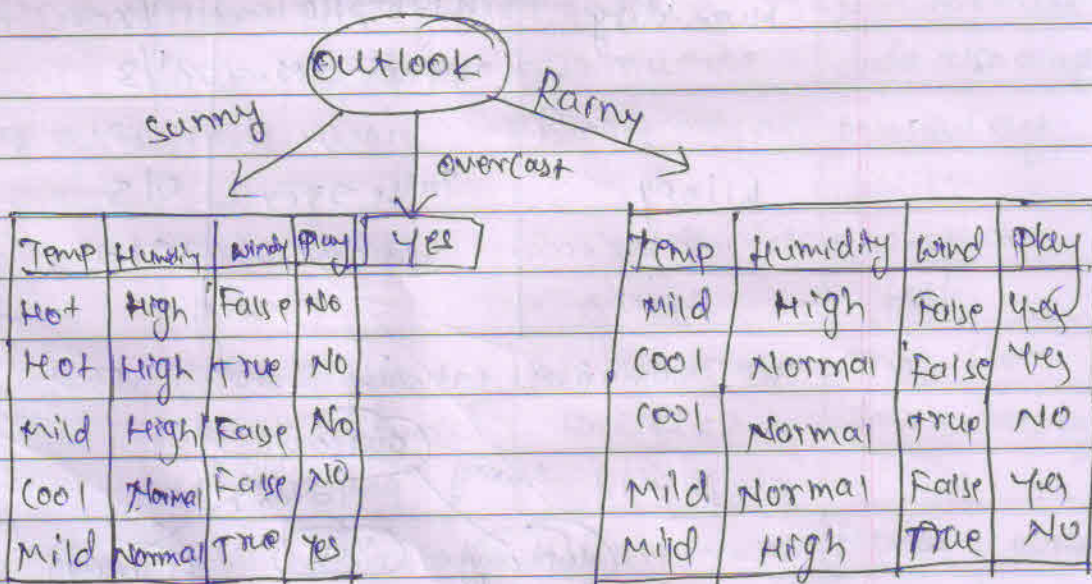 Outlook
Sunny
Overcast
Rainy
Temp Humidity Windy Play
Hot High False No
Hot High True No
Mild High False No
Cool Normal False NO
Mild Normal True Yes
Yes
Temp Humidity Wind Play
Mild High False Yes
Cool Normal False Yes
Cool Normal True NO
Mild Normal False Yes
Mild High True NO